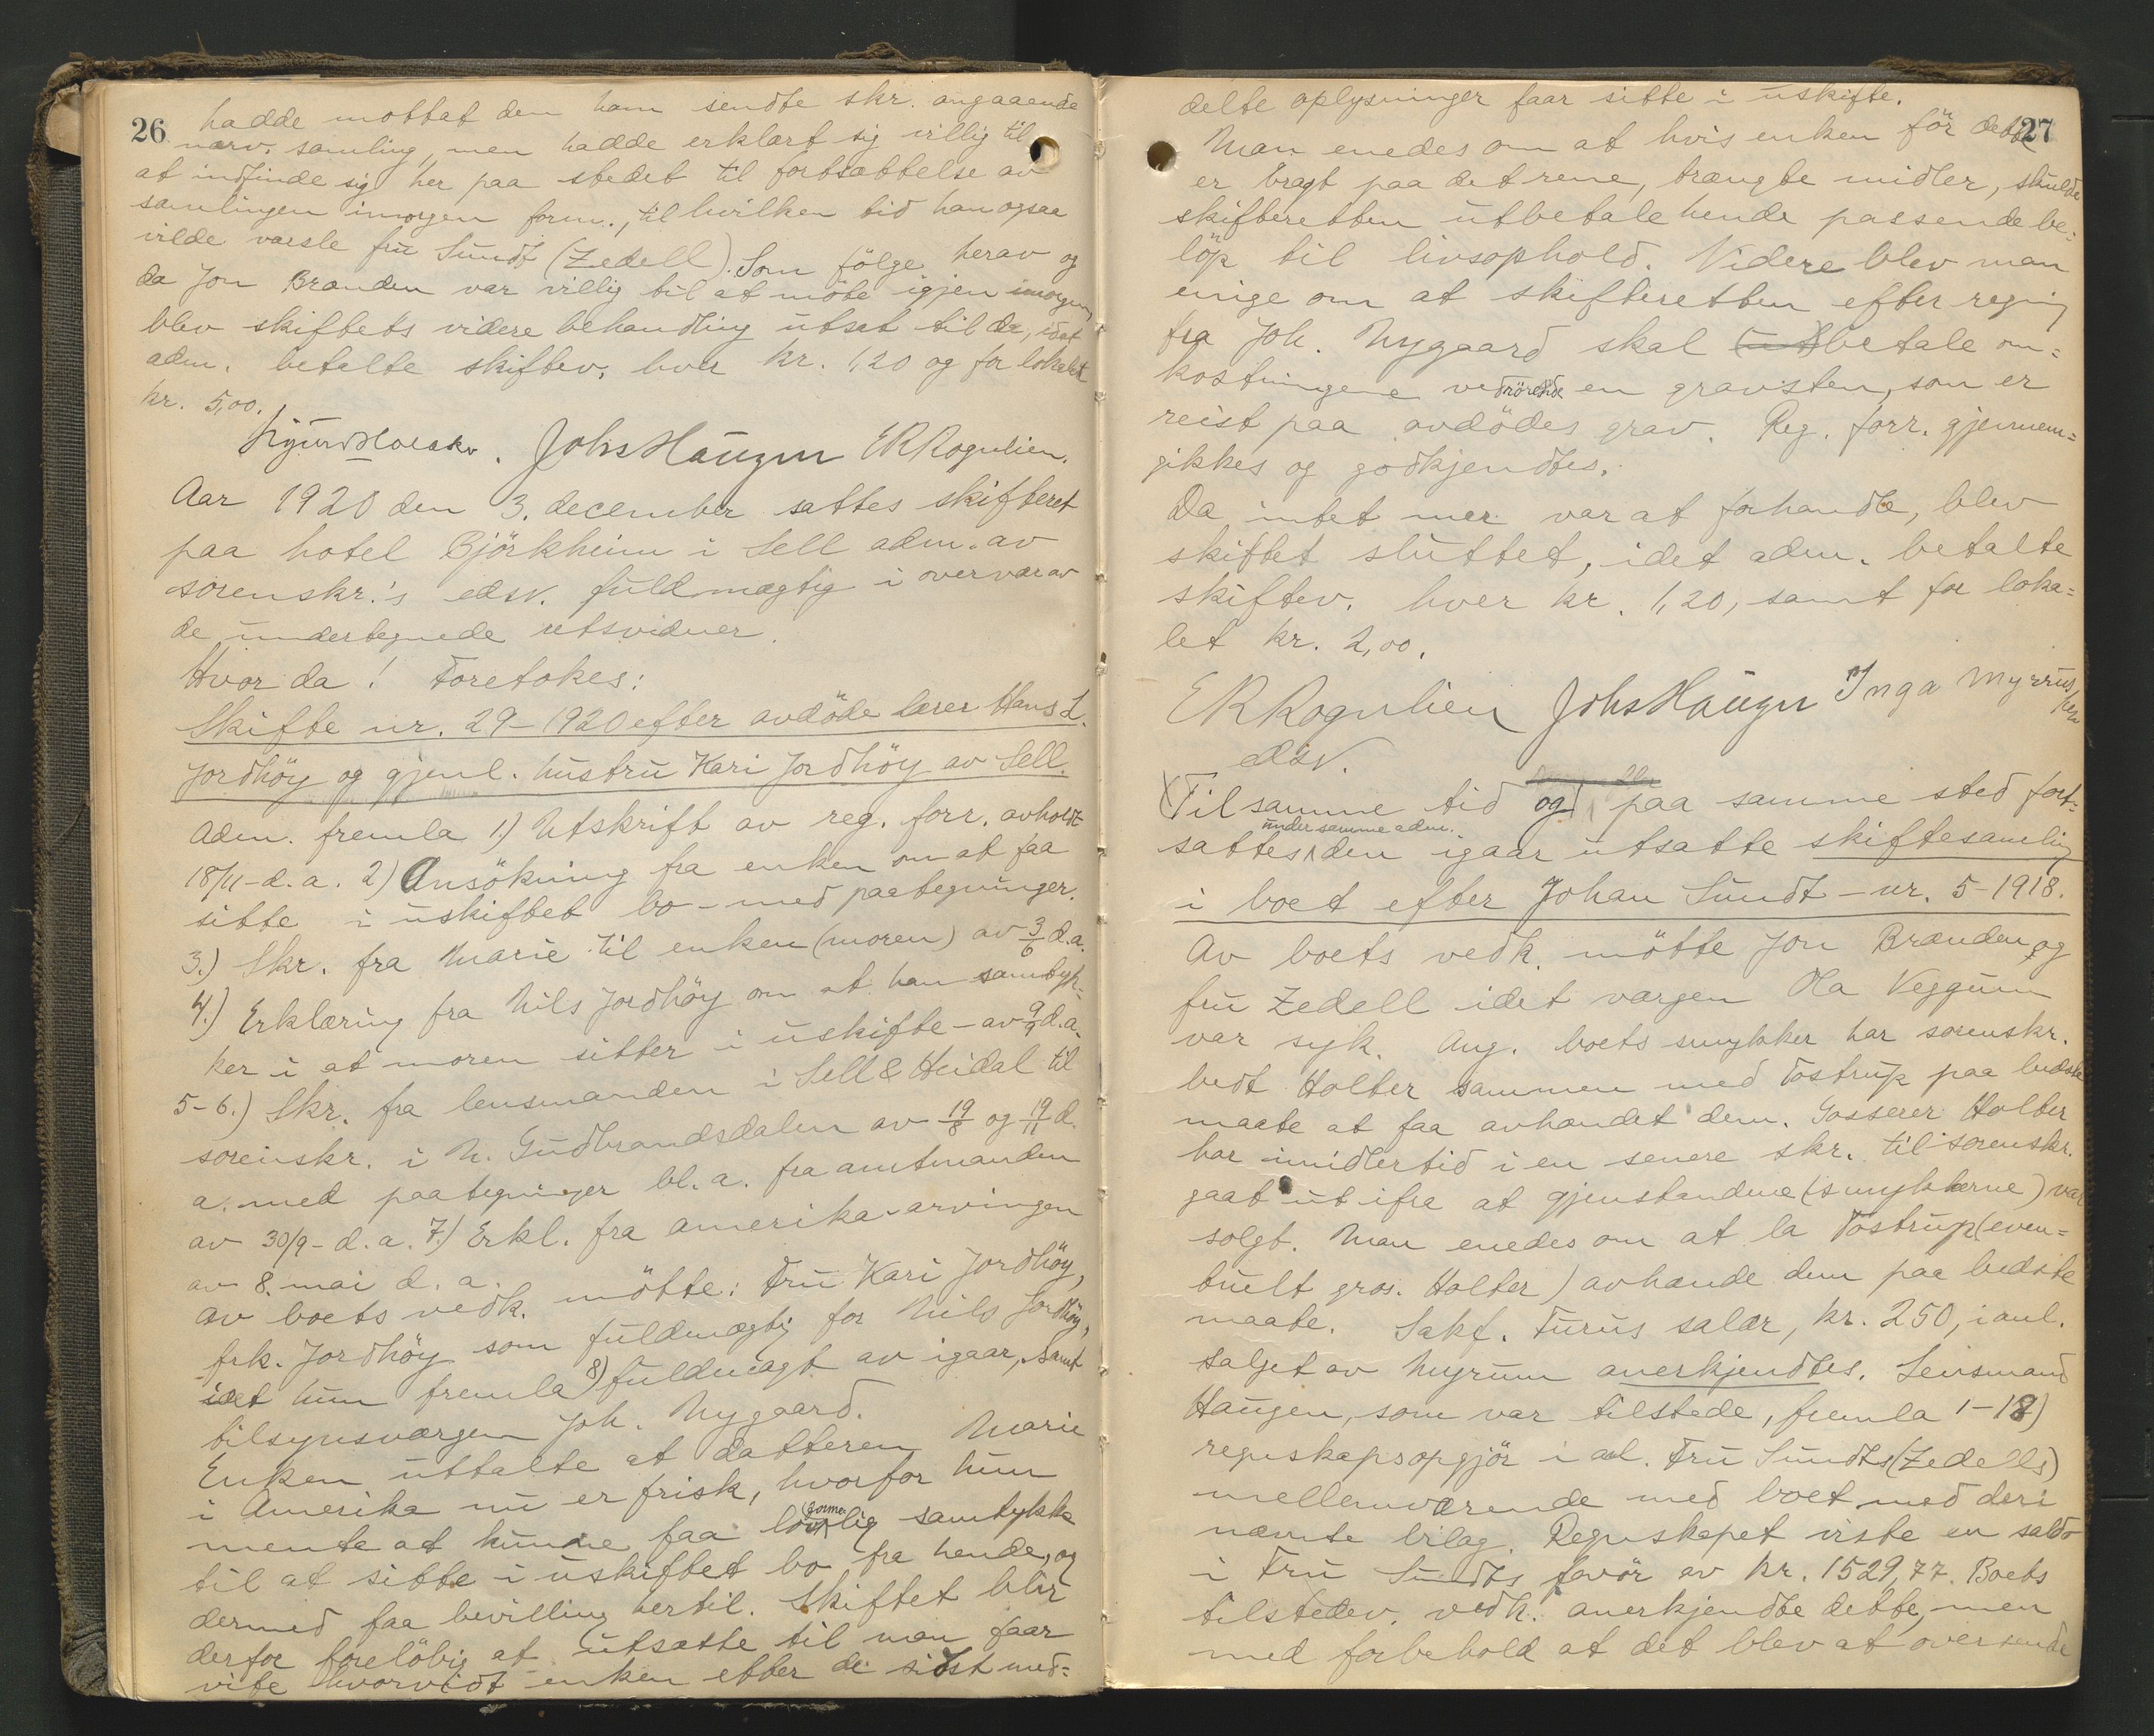 26
hadde mottat den ham sendte skr. angaaende
nærv. samling, men hadde erklært sig villig til
at indfinde sig her paa stedet til fortsættelse av
samlingen imorgen form., til hvilken tid han ogsaa
vilde varsle fru Sundt (Zedell). Som følge herav og
da Jon Brænden var villig til at møte igjen imorgen,
blev skiftets videre behandling utsat til da, idet
adm. betalte skiftev. hver kr. 1,20 og for lokalet
kr. 5,00.
Johs Haugen ER Rognlien.
Aar 1920 den 3. december sattes skifteret
paa hotel Björkheim i Sell adm. av
sorenskr.'s edsv. fuldmægtig i overvær av
de undertegnede retsvidner.
Hvor da! Foretokes:
Skifte nr. 29-1920 efter avdöde lærer Hans L.
Jordhöy og gjenl. hustru Kari Jordhöy av Sell.
Adm. fremla 1.) Utskrift av reg. forr. avholdt
18/11-d.a. 2) Ansökning fra enken om at faa
sitte i uskiftet bo - med paategninger.
3.) Skr. fra Marie til enken (moren) av 3/6 d.a.
4.) Erklæring fra Nils Jordhöy om at han samtyk-
ker i at moren sitter i uskifte - av 9/9 d.a.
5-6.) Skr. fra lensmanden i Sell & Heidal til
sorenskr. i N. Gudbrandsdalen av 19/8 og 19/11 d.
a. med paategninger bl.a. fra amtmanden
av 30/9-d.a. 7.) Erkl. fra amerika-arvingen
av 8. mai d.a.
Av boets vedk. mötte: Fru Kari Jordhöy,
frk. Jordhöy som fuldmægtig for Nils Jordhöy,
idet hun fremla 8) fuldmagt av igaar, samt
tilsynsværgen Joh. Nygaard.
Enken uttalte at datteren Marie
i Amerika nu er frisk, hvorfor hun
mente at kunne faa lovformelig samtykke
til at sitte i uskiftet bo fra hende, og
dermed faa bevilling hertil. Skiftet blir
derfor foreløbig at utsætte til man faar
vite hvorvidt enken efter de sidst med-
27
delte oplysninger faar sitte i uskifte.
Man enedes om at hvis enken för dette
er bragt paa det rene, trængte midler, skulde
skifteretten utbetale hende passende be-
löp til livsophold. Videre blev man
enige om at skifteretten efter regning
fra Joh. Nygaard skal (ut)betale om-
kostningene vedrörende en gravsten, som er
reist paa avdödes grav. Reg. forr. gjennem-
gikkes og godkjendtes.
Da intet mer var at forhandle, blev
skiftet sluttet, idet adm. betalte
skiftev. hver kr. 1,20, samt for loka-
let kr. 2,00.
ER Rognlien Johs Haugen Inga
edsv.
Til samme tid og paa samme sted fort-
sattes under samme adm. den igaar utsatte skiftesamling
i boet efter Johan Sundt - nr. 5-1918.
Av boets vedk. mötte Jon Brænden og
fru Zedell idet værgen Ola Veggum
var syk. Ang. boets smykker har sorenskr.
bedt Holter sammen med Tostrup paa bedste
maate at faa avhændet dem. Grosserer Holter
har imidlertid i en senere skr. til sorenskr.
gaat ut ifra at gjenstandene (smykkerne) var
solgt. Man enedes om at la Tostrup (even-
tuelt gros. Holter) avhænde dem paa bedste
maate. Sakf. Furus salær, kr. 250, i anl.
salget av Myrum anerkjendtes. Lensmand
Haugen, som var tilstede, fremla 1-18)
regnskapsopgjör i anl. Fru Sundts (Zedells)
mellemværende med boet med deri
nævnte bilag. Regnskapet viste en saldo
i Fru Sundts favör av kr. 1529,77. Boets
tilstedev. vedk. anerkjendte dette, men
med forbehold at det blev at oversende